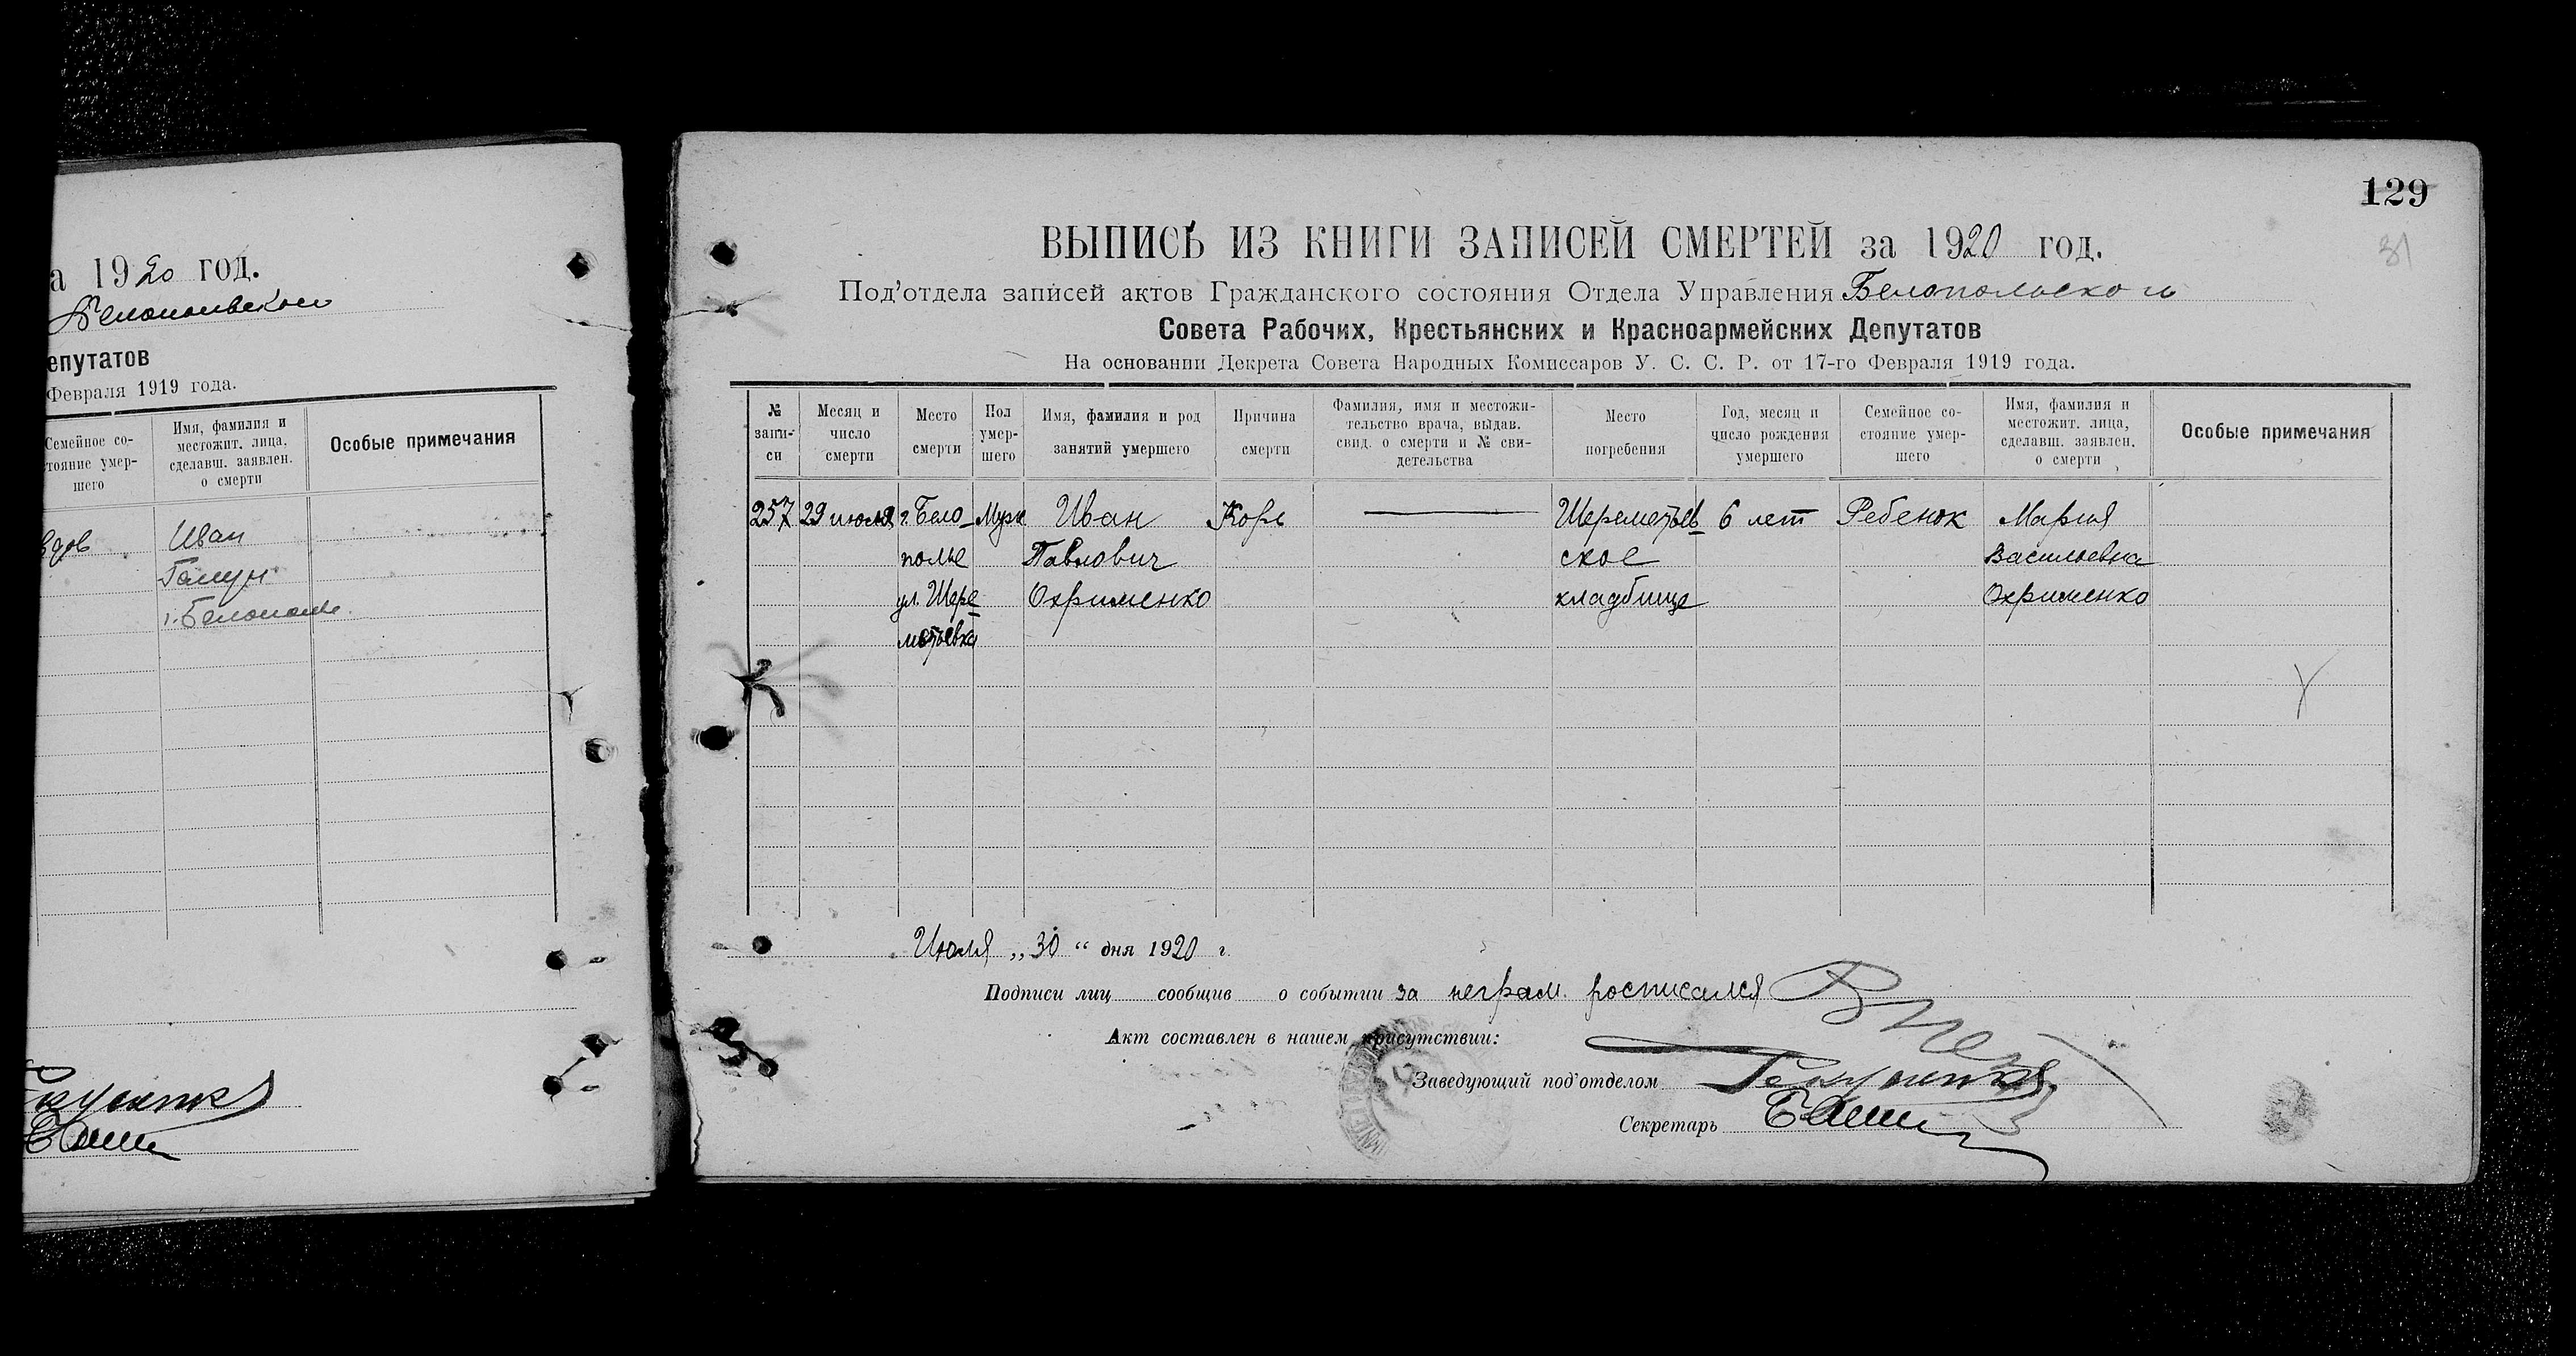 а 1920 год.
Белопольского
епутатов
Февраля 1919 года.
Семейное со-
тояние умер-
шего
Имя, фамилия и
местожит. лица,
сделавш. заявлен.
о смерти
Особые примечания
вдов
Иван
г. Белополье
129
31
ВЫПИСЬ ИЗ КНИГИ ЗАПИСЕЙ СМЕРТЕЙ за 1920 год.
Под'отдела записей актов Гражданского состояния Отдела Управления Белопольского
Совета Рабочих, Крестьянских и Красноармейских Депутатов
На основании Декрета Совета Народных Комиссаров У. С. С. Р. от 17-го Февраля 1919 года.
№
запи-
си
Месяц и
число
смерти
Место
смерти
Пол
умер-
шего
Имя, фамилия и род
занятий умершего
Причина
смерти
Фамилия, имя и местожи-
тельство врача, выдав.
свид. о смерти и № сви-
детельства
Место
погребения
Год, месяц и
число рождения
умершего
Семейное со-
стояние умер-
шего
Имя, фамилия и
местожит. лица,
сделавш. заявлен.
о смерти
Особые примечания
257
29 июля
г. Бело-
полье
ул. Шере-
метьевка
Муж
Иван
Павлович
Охрименко
Корь
Шереметьев-
ское
кладбище
6 лет
Ребенок
Мария
Васильевна
Охрименко
Июля „30“ дня 1920 г.
Подписи лиц сообщив о событии за неграм. росписался
Акт составлен в нашем присутствии:
Заведующий под'отделом
Секретарь